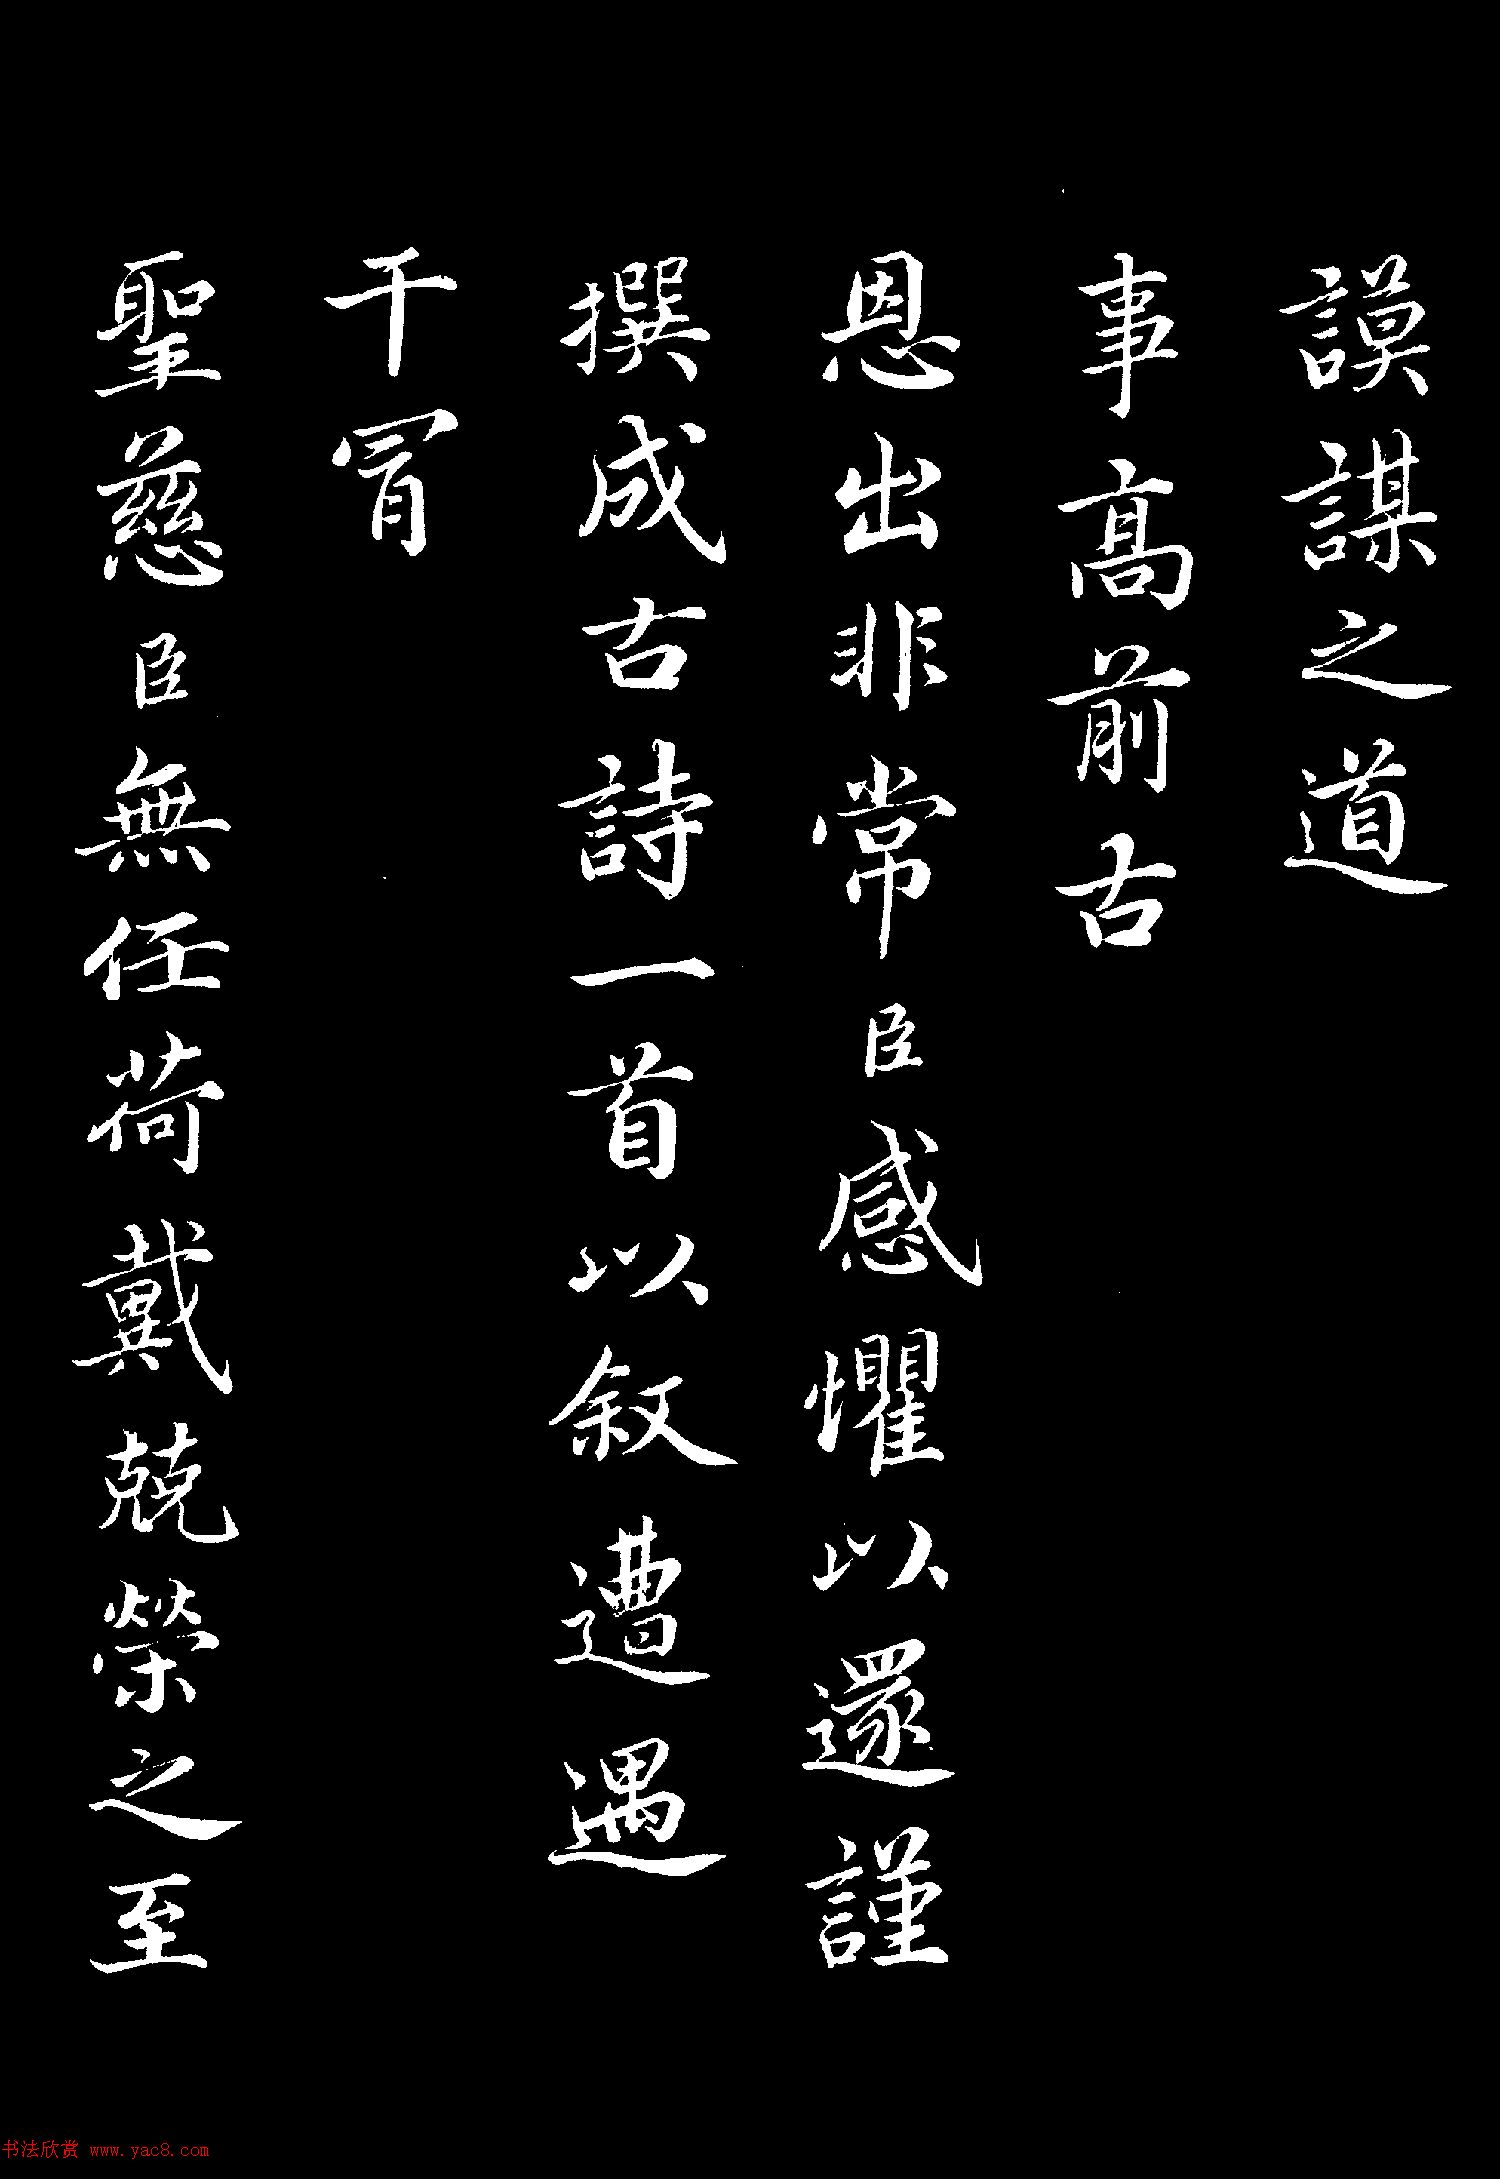 謨謀之道
事高前古
恩出非常臣感懼以還謹
撰成古詩一首以敘遭遇
干冒
聖慈臣無任荷戴兢榮之至
书法欣赏 www.yac8.com